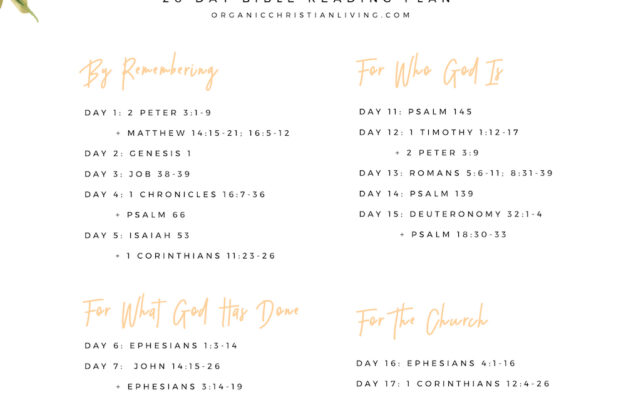 ORGANICCHRISTIANLIVING.COM
By Remembering
DAY 1: 2 PETER 3:1-9
+ MATTHEW 14:15-21; 16:5-12
DAY 2: GENESIS 1
DAY 3: JOB 38-39
DAY 4: 1 CHRONICLES 16:7-36
+ PSALM 66
DAY 5: ISAIAH 53
+ 1 CORINTHIANS 11:23-26
For What God Has Done
DAY 6: EPHESIANS 1:3-14
DAY 7: JOHN 14:15-26
+ EPHESIANS 3:14-19
For Who God Is
DAY 11: PSALM 145
DAY 12: 1 TIMOTHY 1:12-17
+ 2 PETER 3:9
DAY 13: ROMANS 5:6-11; 8:31-39
DAY 14: PSALM 139
DAY 15: DEUTERONOMY 32:1-4
+ PSALM 18:30-33
For the Church
DAY 16: EPHESIANS 4:1-16
DAY 17: 1 CORINTHIANS 12:4-26